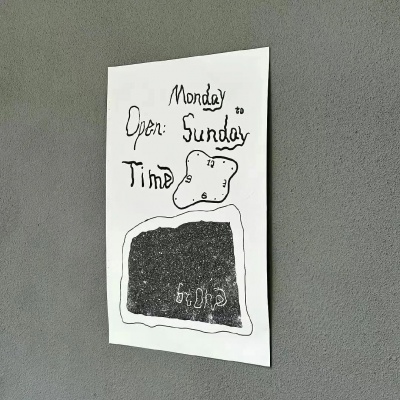 Monday
Open: to
Sunday
Time
12
9 3
6